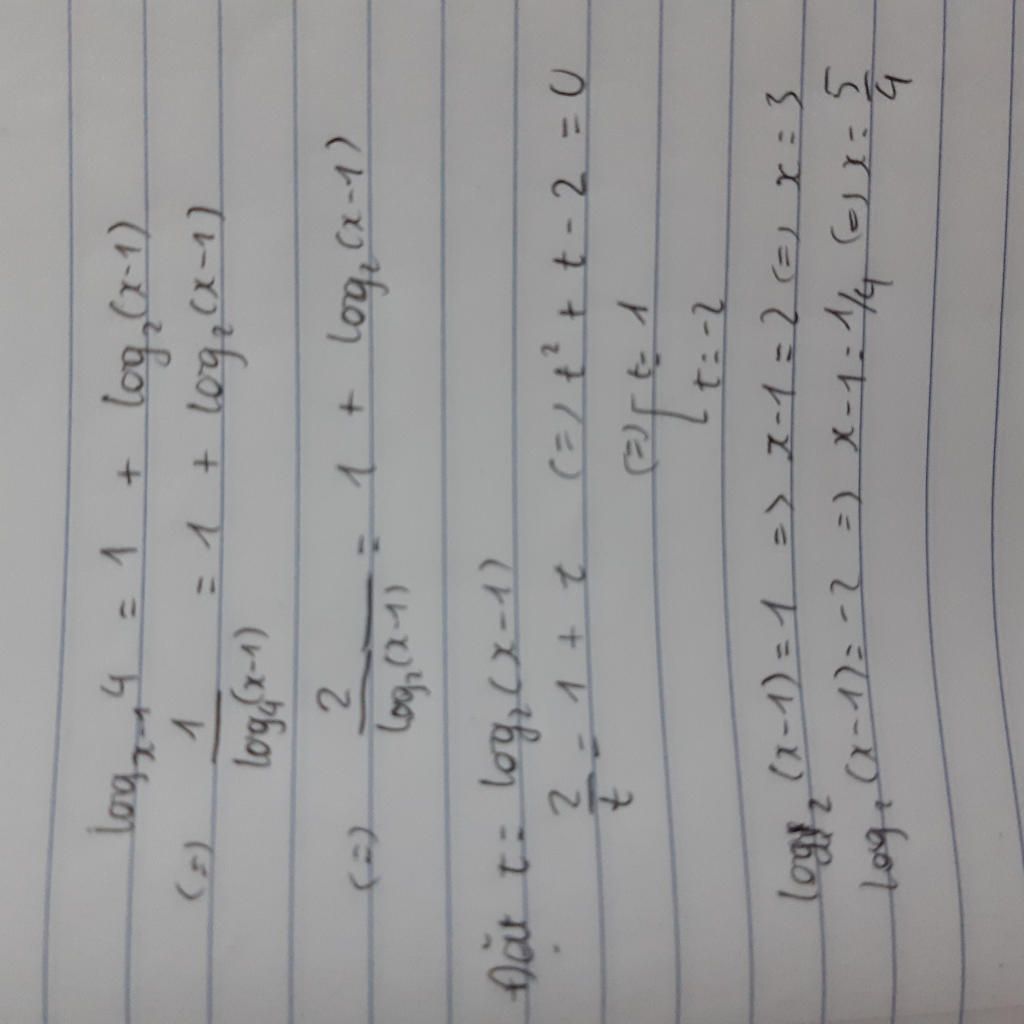 log_{x-1} 4 = 1 + log_2 (x-1)
(=) 1/log_4(x-1) = 1 + log_2 (x-1)
(=) 2/log_2(x-1) = 1 + log_2 (x-1)
Đặt t = log_2 (x-1)
2/t = 1 + t (=) t² + t - 2 = 0
(=) [ t = 1
t = -2
log_2 (x-1) = 1 => x-1 = 2 (=) x = 3
log_2 (x-1) = -2 =) x-1 = 1/4 (=) x = 5/4